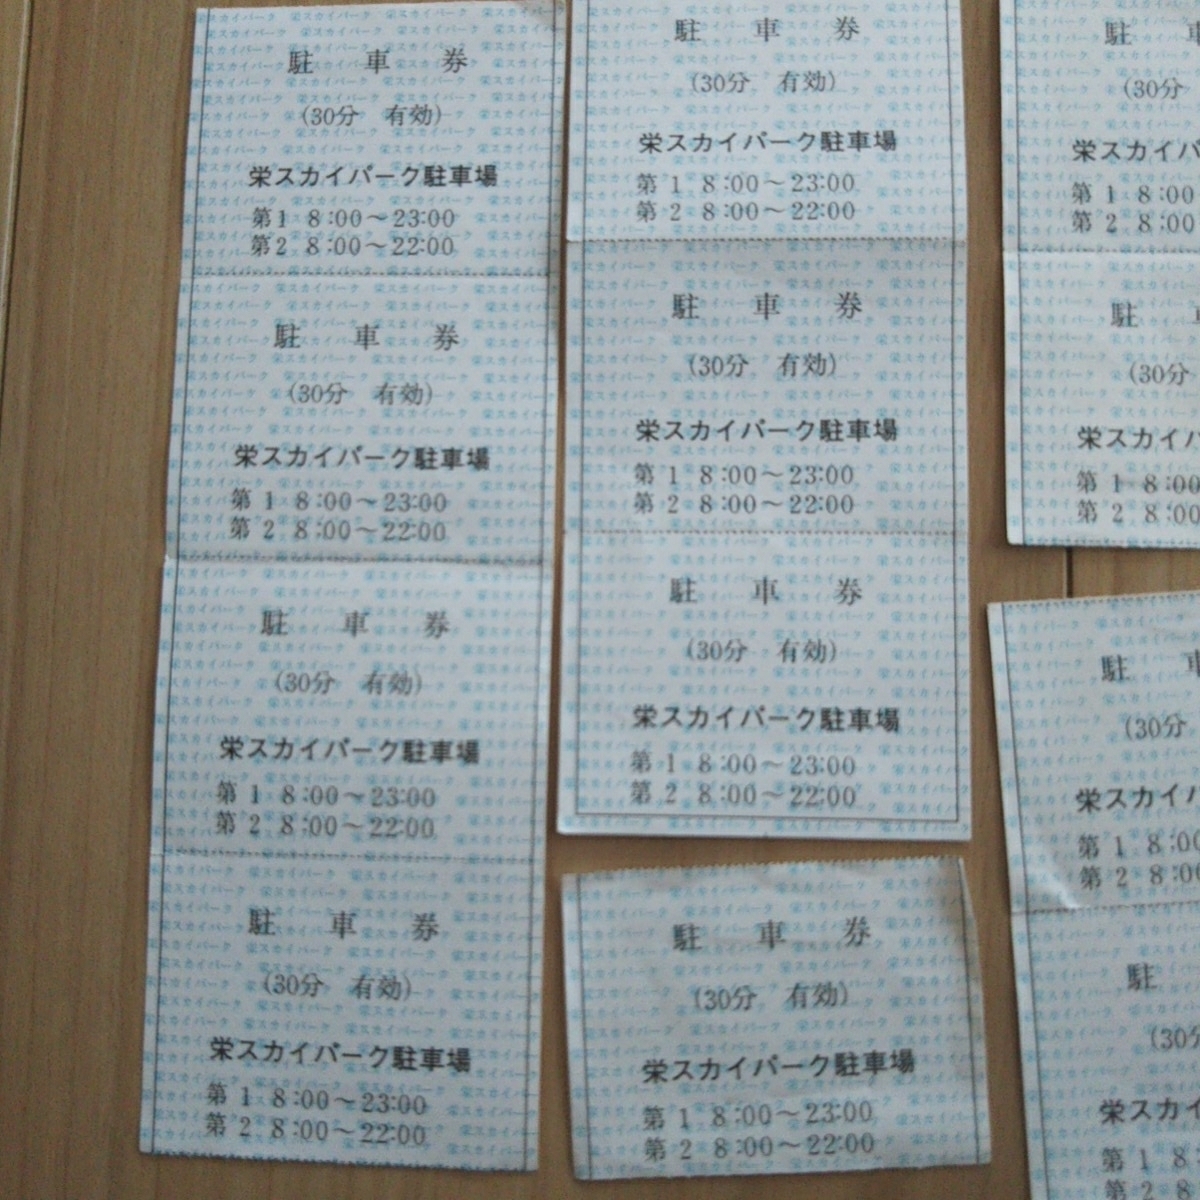 駐 車 券
(30分 有効)
栄スカイパーク駐車場
第1 8:00～23:00
第2 8:00～22:00
駐 車 券
(30分 有効)
栄スカイパーク駐車場
第1 8:00～23:00
第2 8:00～22:00
駐 車 券
(30分 有効)
栄スカイパーク駐車場
第1 8:00～23:00
第2 8:00～22:00
駐 車 券
(30分 有効)
栄スカイパーク駐車場
第1 8:00～23:00
第2 8:00～22:00
駐 車 券
(30分 有効)
栄スカイパーク駐車場
第1 8:00～23:00
第2 8:00～22:00
駐 車 券
(30分 有効)
栄スカイパーク駐車場
第1 8:00～23:00
第2 8:00～22:00
駐 車 券
(30分 有効)
栄スカイパーク駐車場
第1 8:00～23:00
第2 8:00～22:00
駐 車 券
(30分 有効)
栄スカイパーク駐車場
第1 8:00～23:00
第2 8:00～22:00
駐 車
(30分
栄スカイパ
第1 8:00
第2 8:00
駐 車
(30分
栄スカイパ
第1 8:00
第2 8:00
駐 車
(30分
栄スカイパ
第1 8:00
第2 8:00
駐
(30分
栄スカイ
第1 8:
第2 8